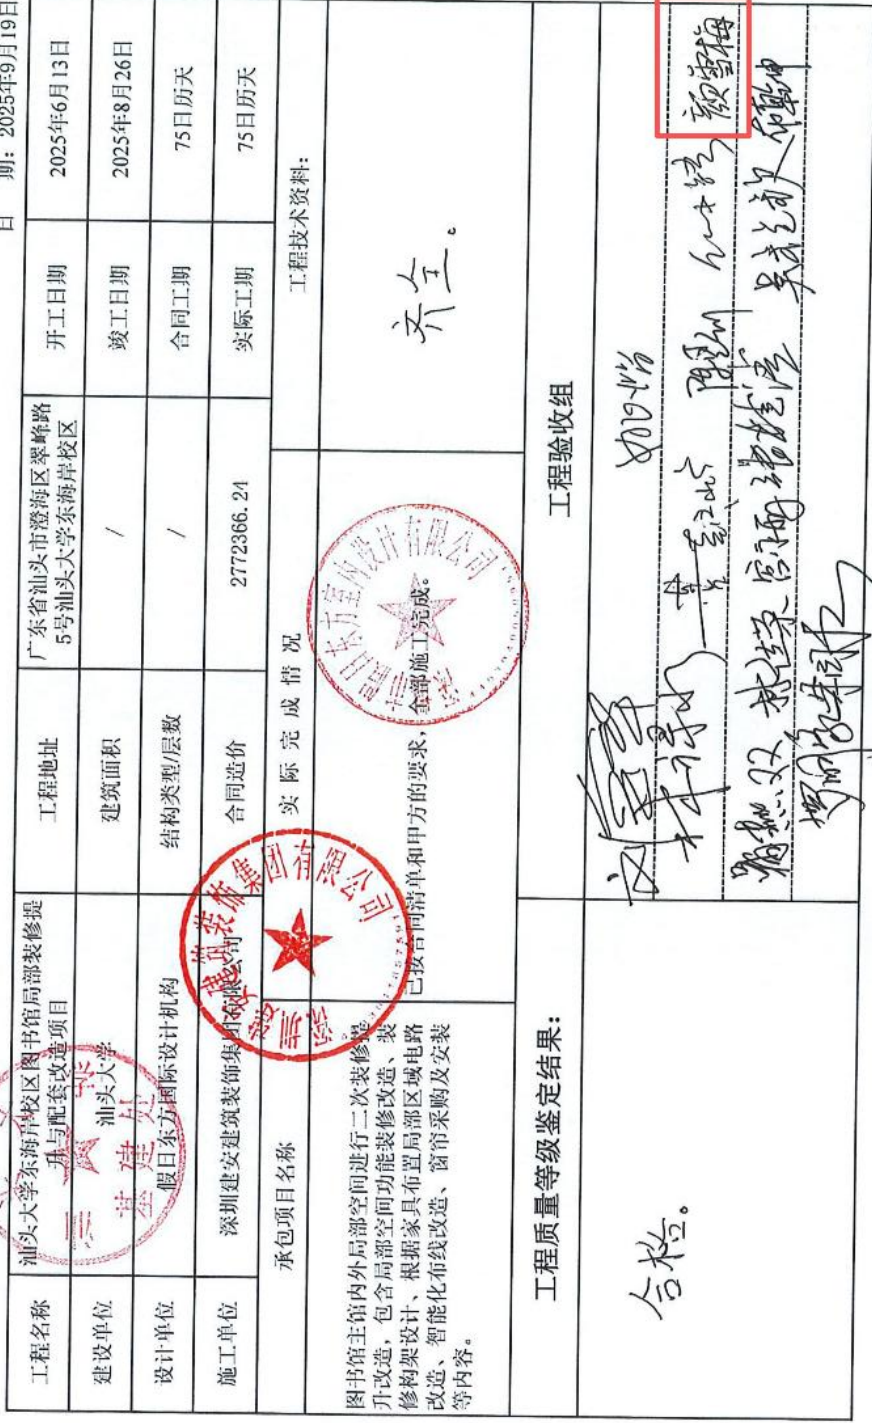 日 期：2025年9月19日
工程名称 汕头大学东海岸校区图书馆局部装修提
升与配套改造项目
工程地址 广东省汕头市澄海区翠峰路
5号汕头大学东海岸校区
开工日期 2025年6月13日
建设单位 汕头大学 建筑面积 / 竣工日期 2025年8月26日
设计单位 假日东方国际设计机构 结构类型/层数 / 合同工期 75日历天
施工单位 深圳建安建筑装饰集团有限公司 合同造价 2772366.24 实际工期 75日历天
承包项目名称 实 际 完 成 情 况 工程技术资料：
图书馆主馆内外局部空间进行二次装修提
升改造，包含局部空间功能装修改造、装
修构架设计、根据家具布置局部区域电路
改造、智能化布线改造、窗帘采购及安装
等内容。
已按合同清单和甲方的要求，全部施工完成。
齐全。
工程质量等级鉴定结果： 工程验收组
合格。
颜雪梅
基建处
建筑装饰集团有限公司
假日东方室内设计有限公司